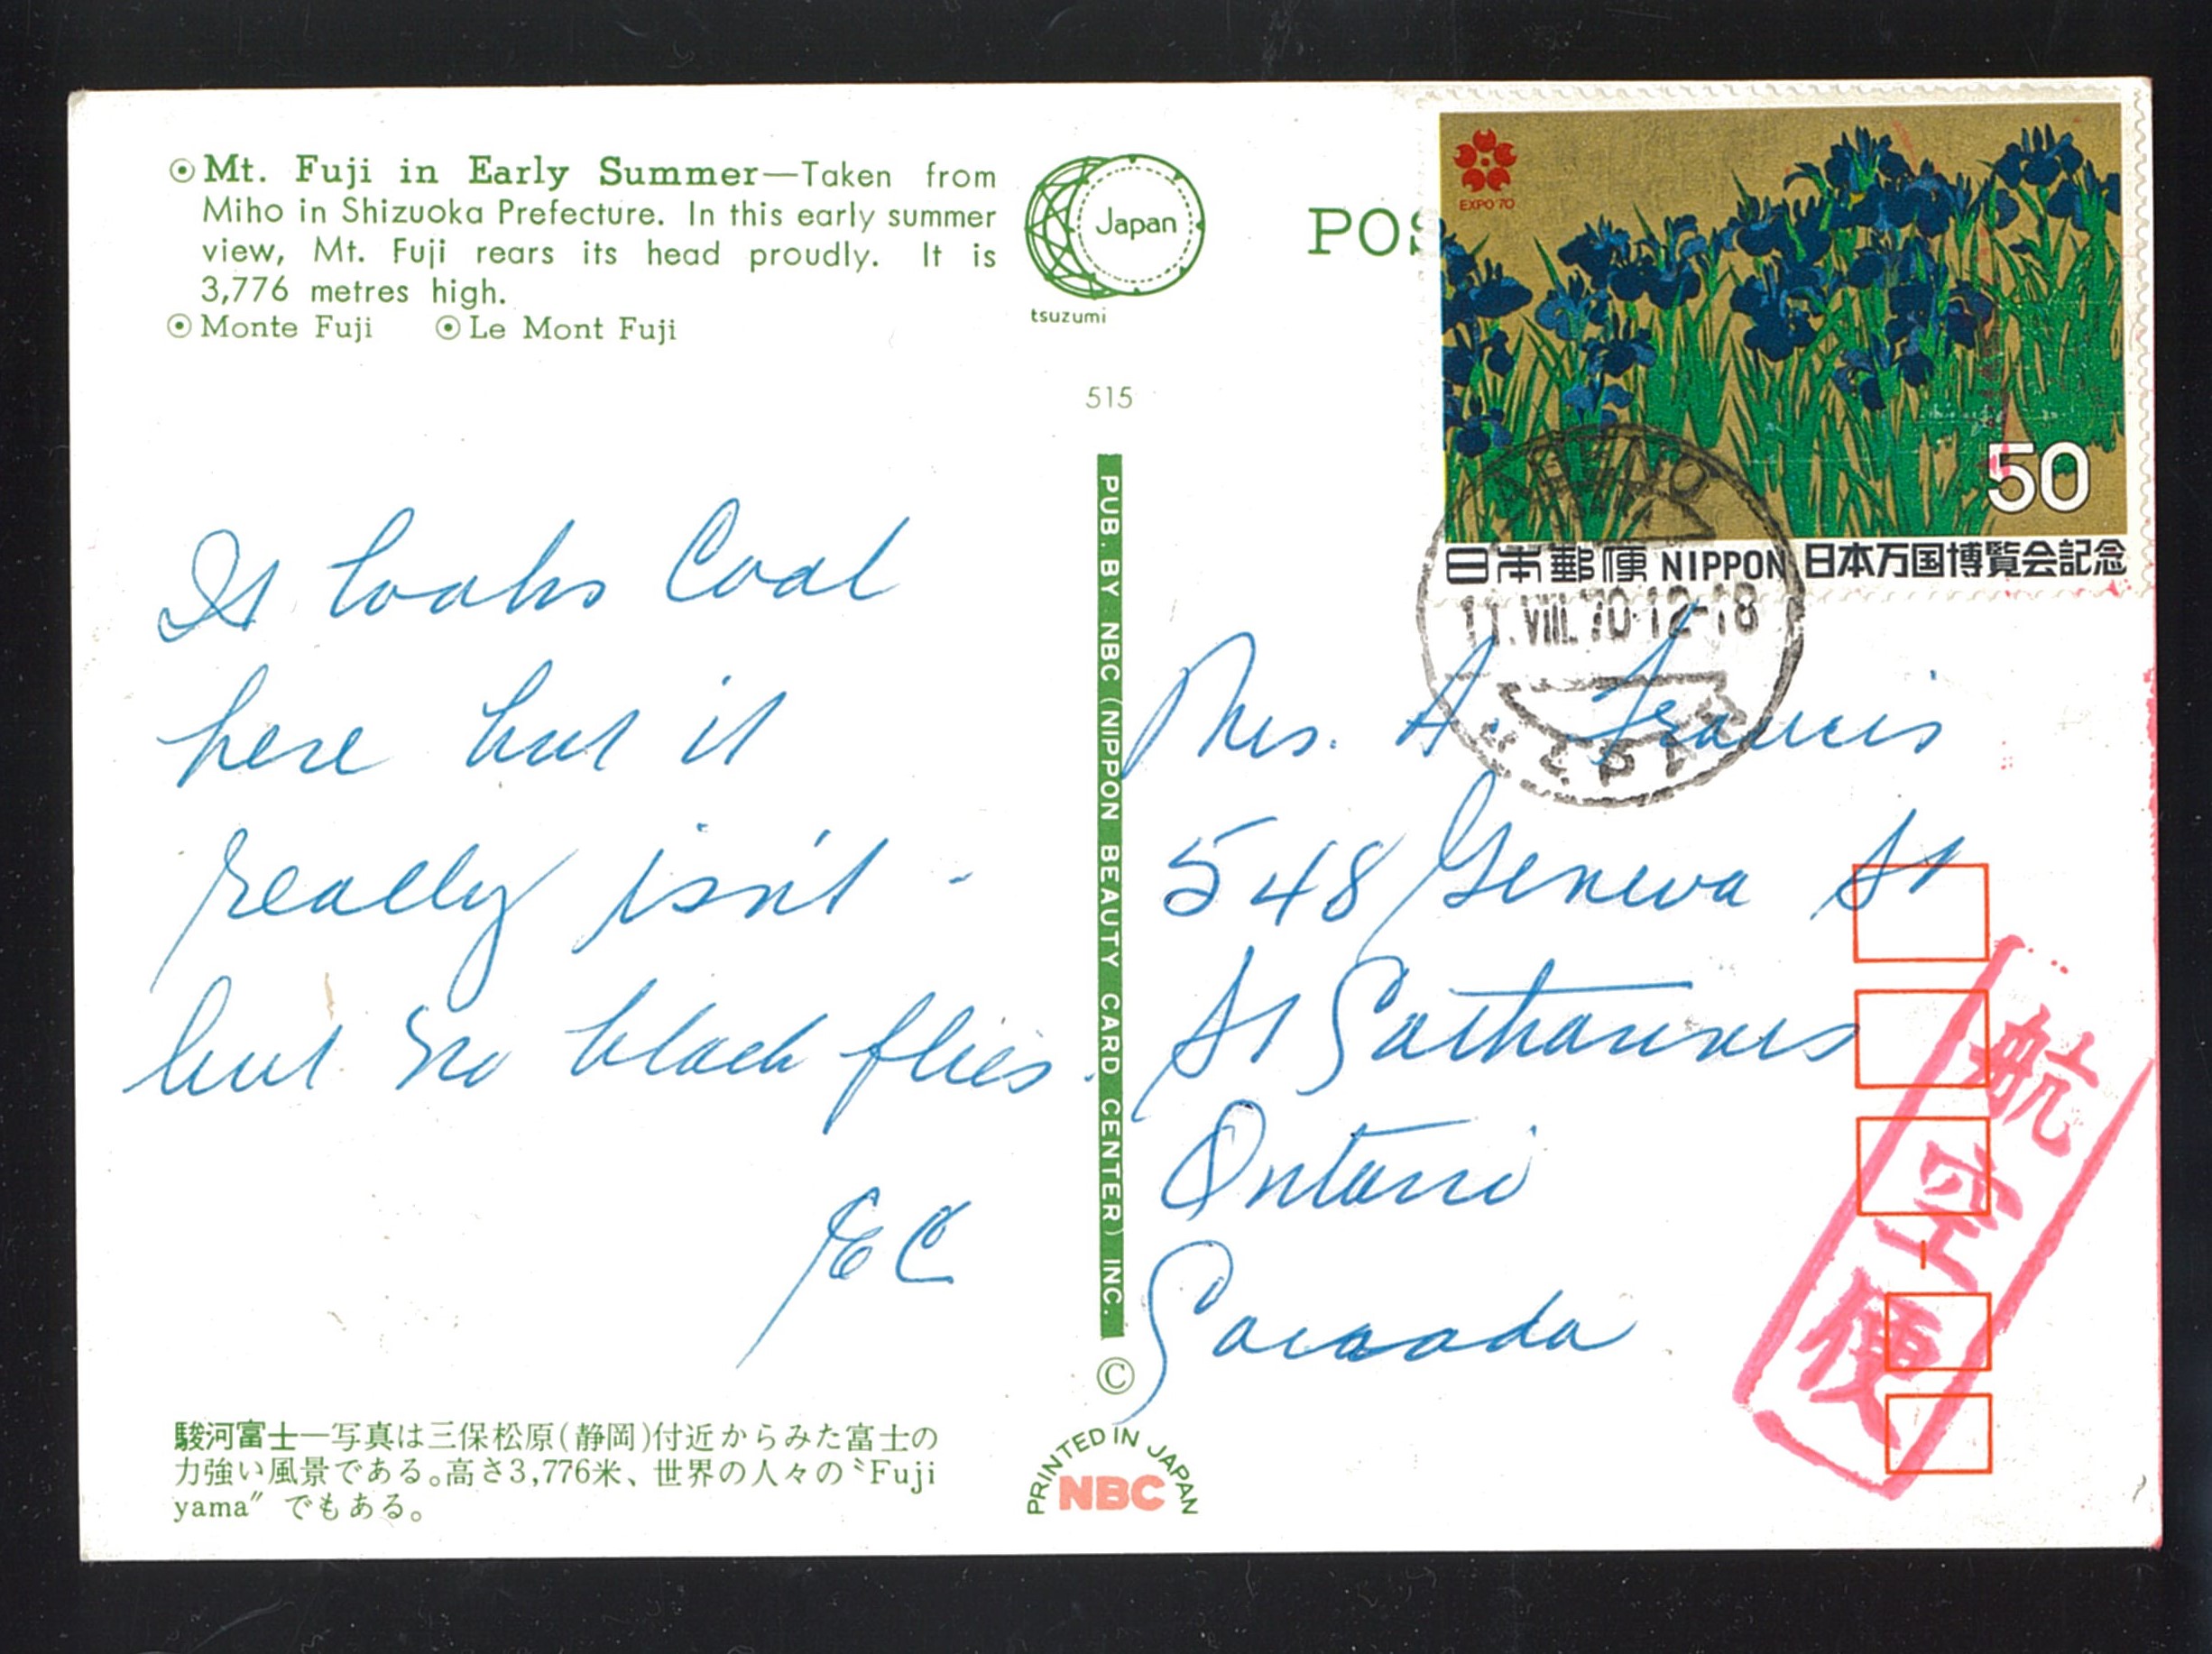 ⦿Mt. Fuji in Early Summer—Taken from
Miho in Shizuoka Prefecture. In this early summer
view, Mt. Fuji rears its head proudly. It is
3,776 metres high.
⦿Monte Fuji ⦿Le Mont Fuji
Japan
tsuzumi
515
POS
EXPO'70
50
日本郵便 NIPPON 日本万国博覧会記念
11.VIII.70.12-18
It looks Cool
here but it
really isn't -
but no black flies.
EC
PUB. BY NBC (NIPPON BEAUTY CARD CENTER) INC.
©
Mrs. A. Francis
548 Geneva St
St Catharines
Ontario
Canada
航空便
駿河富士—写真は三保松原(静岡)付近からみた富士の
力強い風景である。高さ3,776米、世界の人々の〝Fuji
yama〞でもある。
PRINTED IN JAPAN
NBC